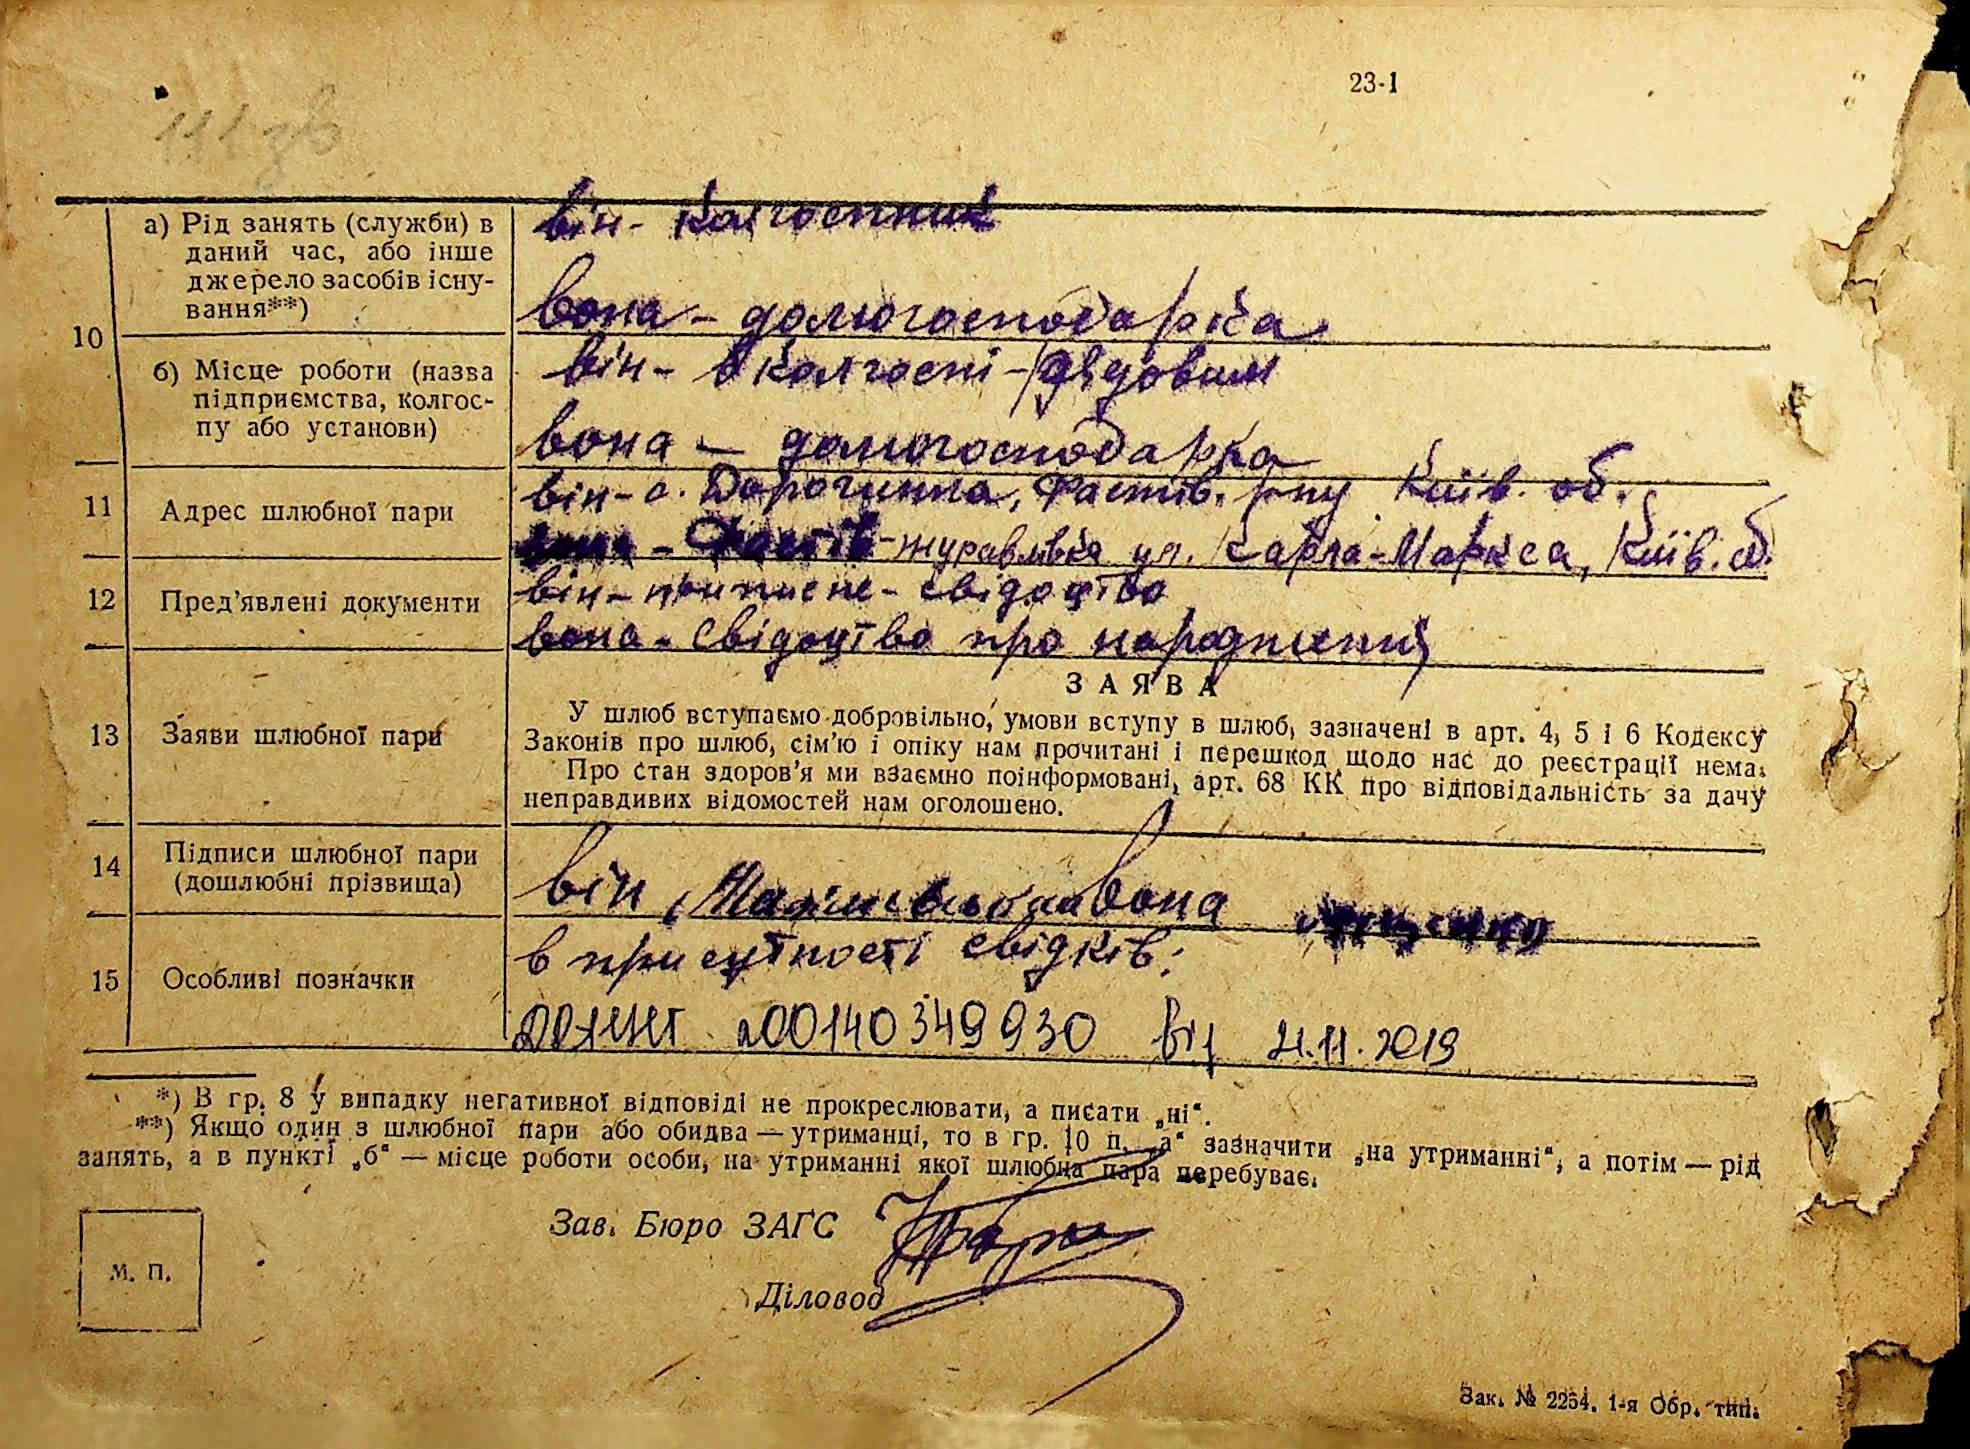 23-1
111 зв
10
а) Рід занять (служби) в
даний час, або інше
джерело засобів існу-
вання**)
він - колгоспник
вона - домогосподарка
б) Місце роботи (назва
підприємства, колгос-
пу або установи)
він - в колгоспі - рядовим
вона - домогосподарка
11
Адрес шлюбної пари
він - с. Дорогинка, Фастів. р-ну Київ. об.
вона - Фастів - журавлівка ул. Карла-Маркса, Київ. об.
12
Пред'явлені документи
він - приписне - свідоцтво
вона - свідоцтво про народження
13
Заяви шлюбної пари
ЗАЯВА
У шлюб вступаємо добровільно, умови вступу в шлюб, зазначені в арт. 4, 5 і 6 Кодексу
Законів про шлюб, сім'ю і опіку нам прочитані і перешкод щодо нас до реєстрації нема.
Про стан здоров'я ми взаємно поінформовані, арт. 68 КК про відповідальність за дачу
неправдивих відомостей нам оголошено.
14
Підписи шлюбної пари
(дошлюбні прізвища)
він вона
15
Особливі позначки
в присутності свідків:
00140349930 від 21.11.2019
*) В гр. 8 у випадку негативної відповіді не прокреслювати, а писати „ні“.
**) Якщо один з шлюбної пари або обидва — утриманці, то в гр. 10 п. „а“ зазначити „на утриманні“, а потім — рід
занять, а в пункті „б“ — місце роботи особи, на утриманні якої шлюбна пара перебуває.
Зав. Бюро ЗАГС
Діловод
М. П.
Зак. № 2254. 1-я Обр. тип.